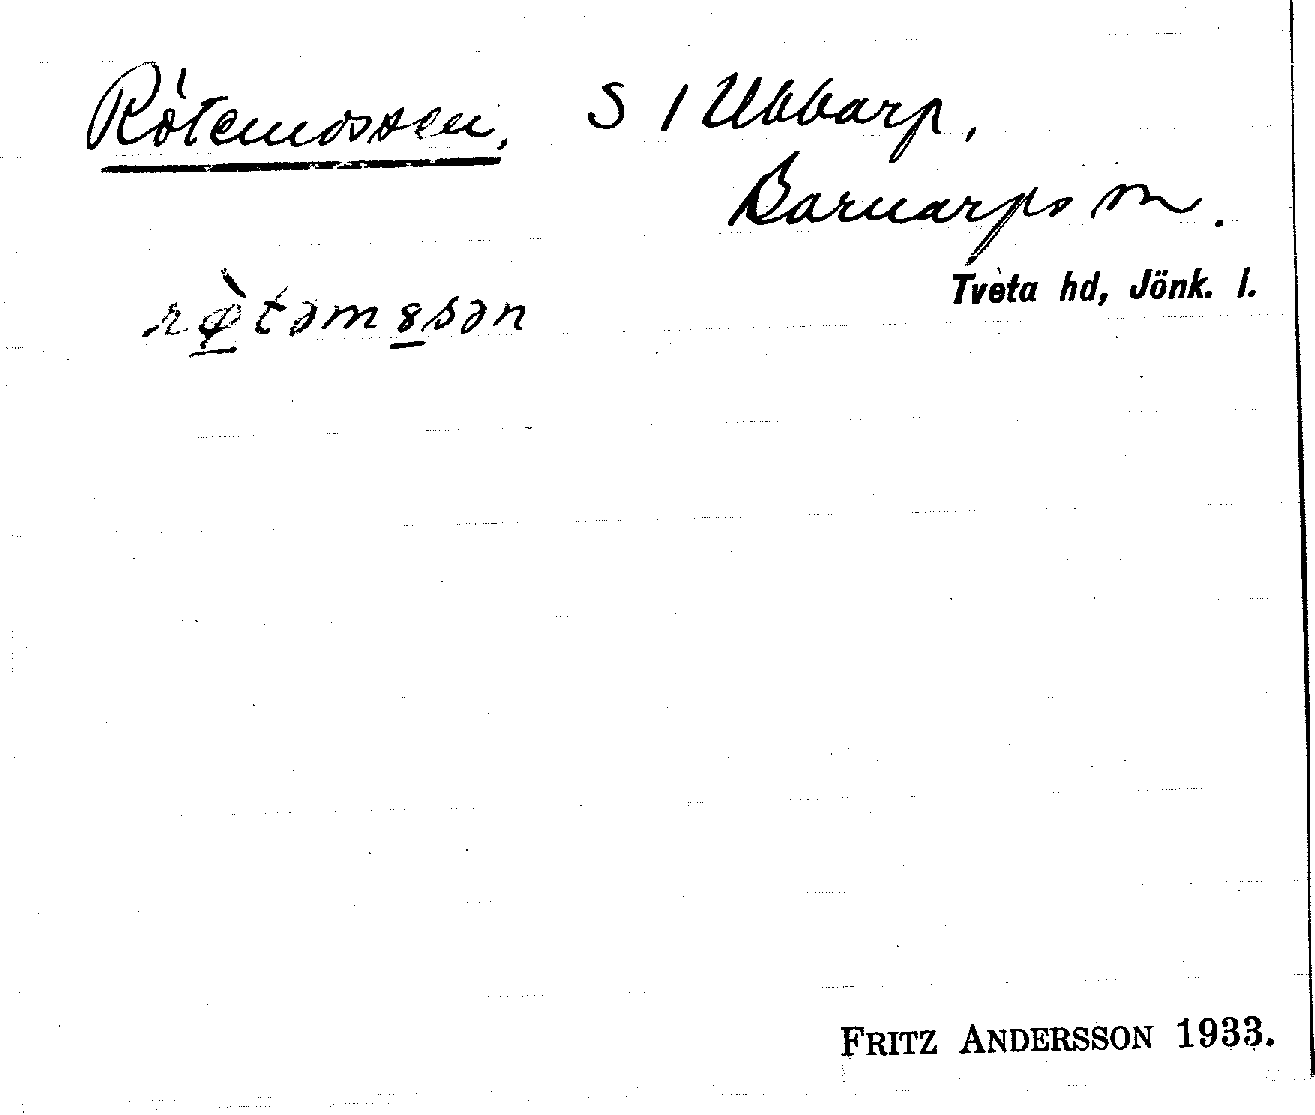 Rötemossen, S / Ubbarp,
Barnarps sn.
Tveta hd, Jönk. l.
rø̀təm8sən
FRITZ ANDERSSON 1933.